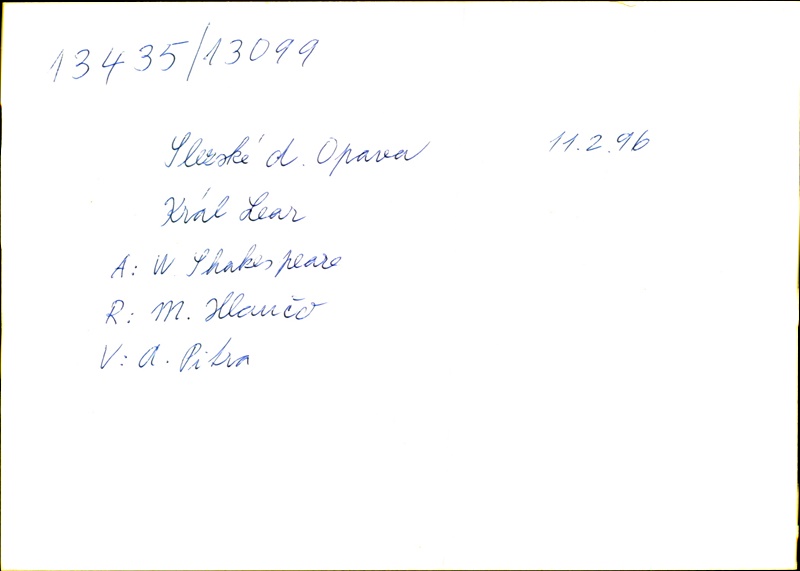 13435/13099
Slezské d. Opava 11.2.96
Král Lear
A: W Shakespeare
R: M.
V: A. Pitra